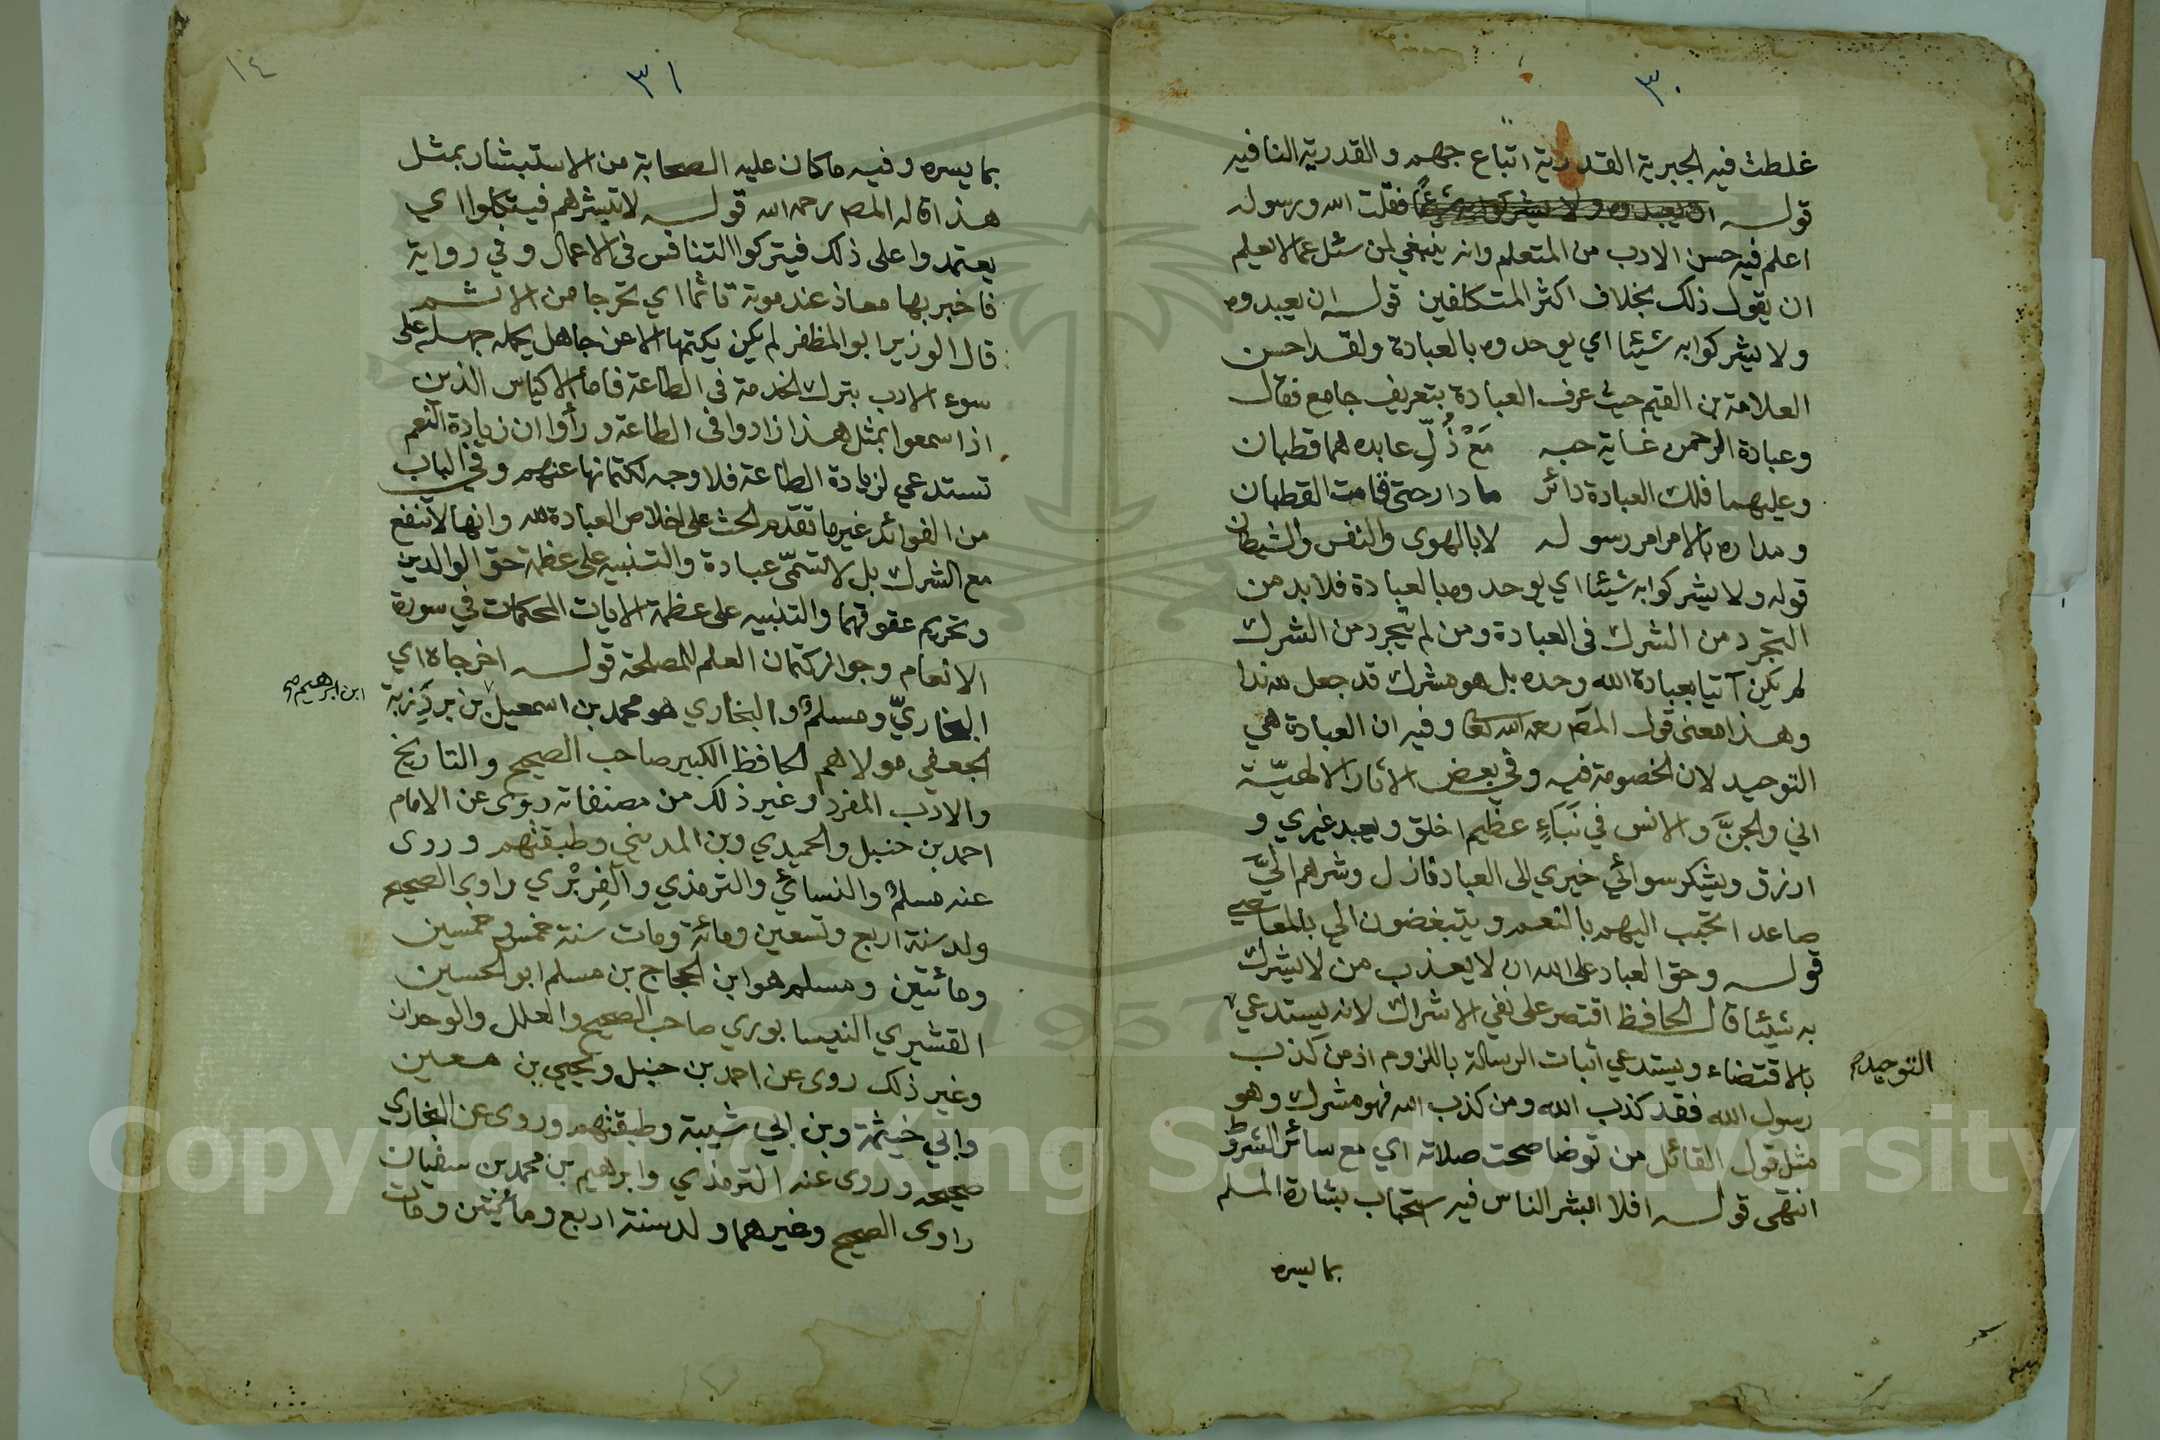 ٣٠
غلطت فيه الجبرية القدرية اتباع جهم والقدرية النافيه
قوله ان يعبدوه ولا يشركوا به شيئًا فقلت الله ورسوله
اعلم فيه حسن الادب من المتعلم وانه ينبغي لمن سئل عما لا يعلم
ان يقول ذلك بخلاف اكثر المتكلفين قوله ان يعبدوه
ولا يشركوا به شيئا اي يوحدوه بالعبادة ولقد احسن
العلامة بن القيم حيث عرف العبادة بتعريف جامع فقال
وعبادة الرحمن غاية حبه مَعْ ذُلِّ عابده هما قطبان
وعليهما فلك العبادة دائر ما دار حتى قامت القطبان
ومداره بالامر امر رسوله لا بالهوى والنفس والشيطان
قوله ولا يشركوا به شيئا اي يوحدوه بالعبادة فلا بد من
التجرد من الشرك في العبادة ومن لم يتجرد من الشرك
لم يكن آتيا بعبادة الله وحده بل هو مشرك قد جعل لله ندا
وهذا معنى قول المص رحمه الله تعا وفيه ان العبادة هي
التوحيد لان الخصومة فيه وفي بعض الاثار الالهيّة
اني والجنَّ والانس في نَبَاءٍ عظيم اخلق ويعبد غيري و
ارزق ويشكر سوائي خيري الى العباد نازل وشرهم اليَّ
صاعد اتحبب اليهم بالنعم ويتبغضون الي بالمعاصي
قوله وحق العباد على الله ان لا يعذب من لا يشرك
به شيئا قال الحافظ اقتصر على نفي الاشراك لانه يستدعي
التوحيد
بالاقتضاء ويستدعي اثبات الرسالة باللزوم اذ من كذب
رسول الله فقد كذب الله ومن كذب الله فهو مشرك وهو
مثل قول القائل من توضا صحت صلاته اي مع سائر الشروط
انتهى قوله افلا ابشر الناس فيه استحباب بشارة المسلم
بما يسره
٣١
١٤
بما يسره وفيه ما كان عليه الصحابة من الاستبشار بمثل
هذا قاله المص رحمه الله قوله لا تبشرهم فيتكلوا اي
يعتمدوا على ذلك فيتركوا التنافس في الاعمال وفي رواية
فاخبر بها معاذ عند موته تاثما اي تحرجا من الاثم
قال الوزير ابو المظفر لم يكن يكتمها الا عن جاهل يحمله جهله على
سوء الادب بترك الخدمة في الطاعة فاما الاكياس الذين
اذا سمعوا بمثل هذا زادوا في الطاعة ورأوا ان زيادة النعم
تستدعي لزيادة الطاعة فلا وجه لكتمانها عنهم وفي الباب
من الفوائد غير ما تقدم الحث على اخلاص العبادة لله وانها لا تنفع
مع الشرك بل لا تسمّى عبادة والتنبيه على عظمة حق الوالدين
وتحريم عقوقهما والتنبيه على عظمة الايات المحكمات في سورة
الانعام وجواز كتمان العلم للمصلحة قوله اخرجاه اي
البخاريّ ومسلم والبخاري هو محمد بن اسمعيل بن بردِزبة
ابن ابرهيم صح
الجعفي مولاهم الحافظ الكبير صاحب الصحيح والتاريخ
والادب المفرد وغير ذلك من مصنفاته روى عن الامام
احمد بن حنبل والحميدي وبن المديني وطبقتهم وروى
عنه مسلم والنسائي والترمذي والفِرَبْري راوي الصحيح
ولد سنة اربع وتسعين ومائة ومات سنة خمس وخمسين
ومائتين ومسلم هو ابن الحجاج بن مسلم ابو الحسين
القشيري النيسابوري صاحب الصحيح والعلل والوحدان
وغير ذلك روى عن احمد بن حنبل ويحيى بن معين
وابي خيثمة وبن ابي شيبة وطبقتهم وروى عن البخاري
صحيحه وروى عنه الترمذي وابراهيم بن محمد بن سفيان
راوى الصحيح وغيرهما ولد سنة اربع ومائتين ومات
Copyright © King Saud University
1957